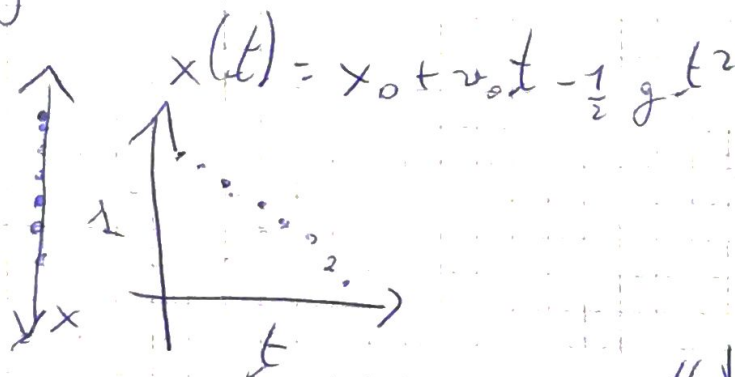 x(t) = x₀ + v₀t - ½ g t²
x
t